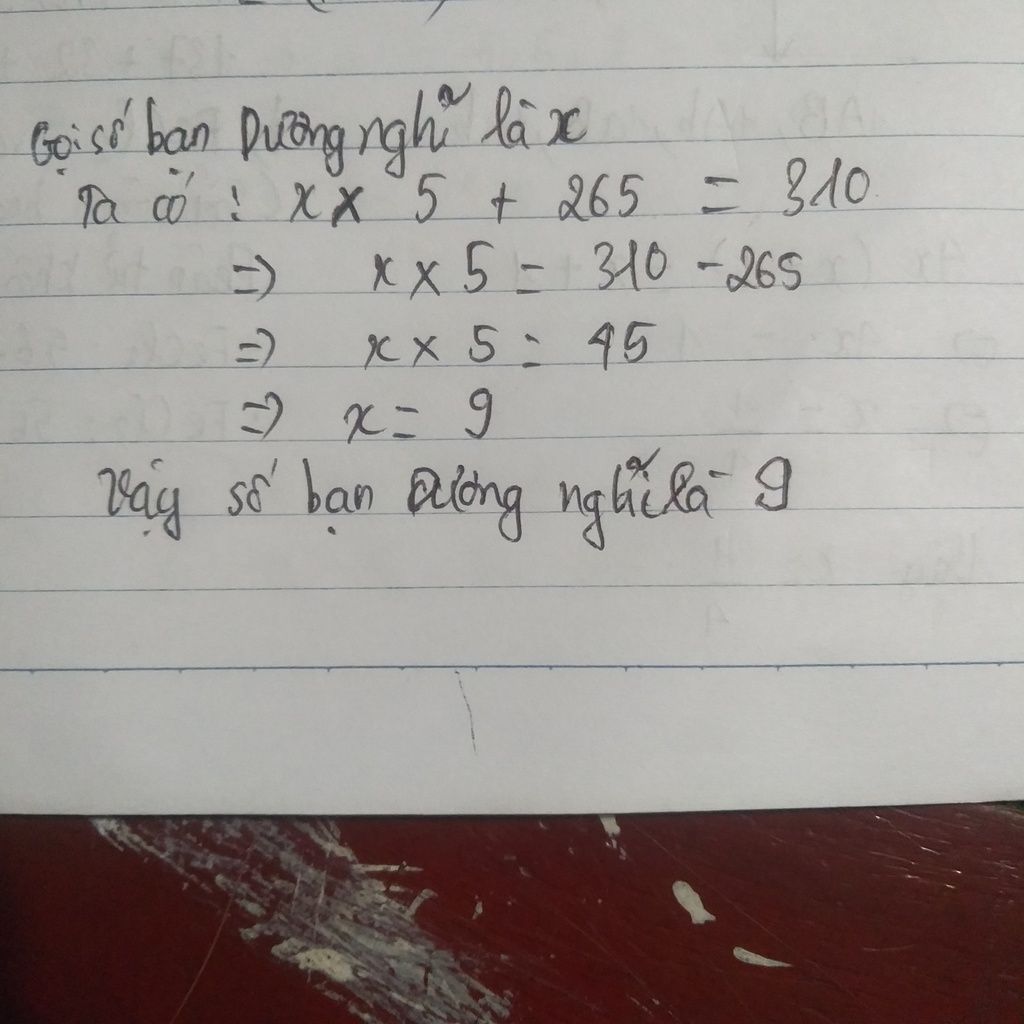 Gọi số bạn Dương nghĩ là x
Ta có : x × 5 + 265 = 310
=> x × 5 = 310 - 265
=> x × 5 = 45
=> x = 9
Vậy số bạn Dương nghĩ là 9